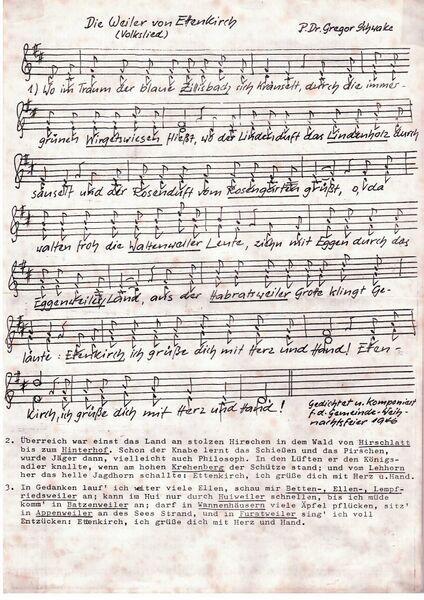 Die Weiler von Etenkirch
(Volkslied)
P. Dr. Gregor Schwake
1) Wo im Traum der blaue Zillisbach sich kräuselt, durch die immer-
grünen Wirgetswiesen fließt, wo der Lindenduft das Lindenholz durch
säuselt und der Rosenduft vom Rosengarten grüßt, o, da
walten froh die Waltenweiler Leute, ziehn mit Eggen durch das
Eggenweiler Land, aus der Habratsweiler Grote klingt Ge-
läute: Etenkirch ich grüße dich mit Herz und Hand! Eten-
kirch, ich grüße dich mit Herz und Hand!
Gedichtet u. Komponiert
f. d. Gemeinde-Weih-
nachtsfeier 1946
2. Überreich war einst das Land an stolzen Hirschen in dem Wald von Hirschlatt
bis zum Hinterhof. Schon der Knabe lernt das Schießen und das Pirschen,
wurde Jäger dann, vielleicht auch Philosoph. In den Lüften er den Königs-
adler knallte, wenn am hohen Krehenberg der Schütze stand; und vom Lehhorn
her das helle Jagdhorn schallte: Ettenkirch, ich grüße dich mit Herz u.Hand.
3. In Gedanken lauf' ich weiter viele Ellen, schau mir Betten-, Ellen-, Lempf-
riedsweiler an; kann im Hui nur durch Huiweiler schnellen, bis ich müde
komm' in Batzenweiler an; darf in Wannenhäusern viele Äpfel pflücken, sitz'
in Appenweiler an des Sees Strand, und in Furatweiler sing' ich voll
Entzücken: Ettenkirch, ich grüße dich mit Herz und Hand.